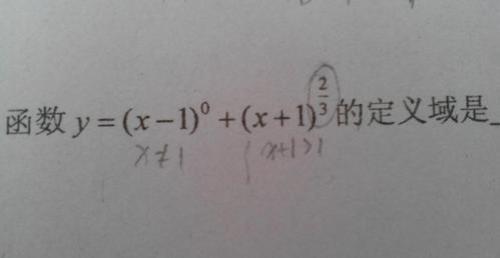 函数 y = (x-1)⁰ + (x+1)^{2/3} 的定义域是_
x≠1 x+1>1